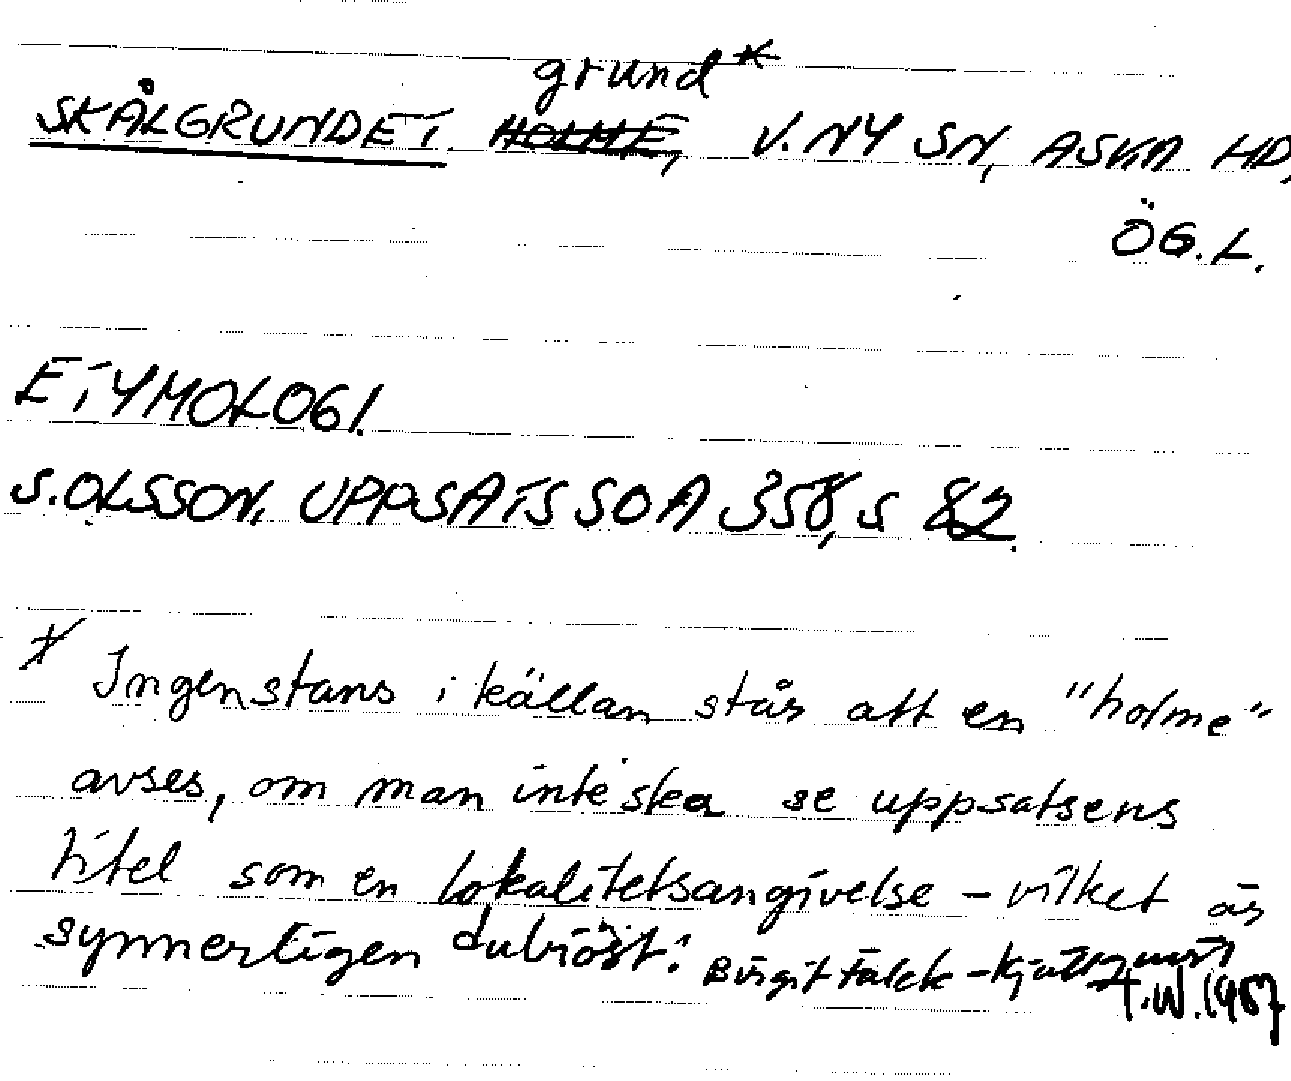 grund*
SKÅLGRUNDET. HOLME, V. NY SN, ASKA HD,
ÖG.L.
ETYMOLOGI.
S. OLSSON, UPPSATS SOA 358, S 82.
* Ingenstans i källan står att en "holme"
avses, om man inte ska se uppsatsens
titel som en lokalitetsangivelse - vilket är
synnerligen dubiöst! Birgit Falck-Kjällquist
T.W. 1987